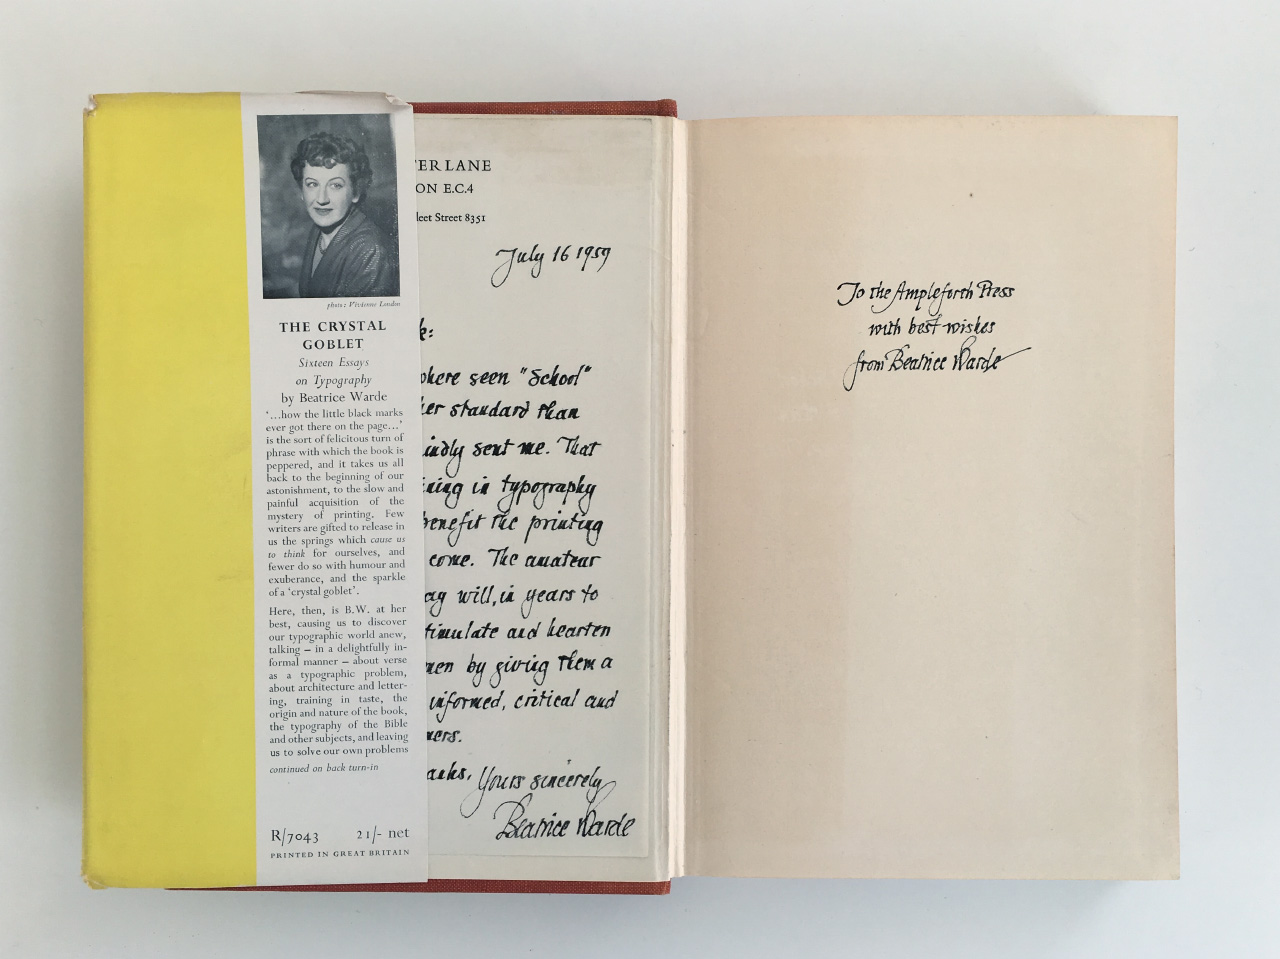 photo: Vivienne London
THE CRYSTAL
GOBLET
Sixteen Essays
on Typography
by Beatrice Warde
‘...how the little black marks
ever got there on the page...’
is the sort of felicitous turn of
phrase with which the book is
peppered, and it takes us all
back to the beginning of our
astonishment, to the slow and
painful acquisition of the
mystery of printing. Few
writers are gifted to release in
us the springs which cause us
to think for ourselves, and
fewer do so with humour and
exuberance, and the sparkle
of a ‘crystal goblet’.
Here, then, is B.W. at her
best, causing us to discover
our typographic world anew,
talking – in a delightfully in-
formal manner – about verse
as a typographic problem,
about architecture and letter-
ing, training in taste, the
origin and nature of the book,
the typography of the Bible
and other subjects, and leaving
us to solve our own problems
continued on back turn-in
R/7043 21/- net
PRINTED IN GREAT BRITAIN
TER LANE
ON E.C.4
leet Street 8351
July 16 1959
k:
where seen "School"
her standard than
indly sent me. That
ining in typography
benefit the printing
come. The amateur
ag will, in years to
timulate and hearten
men by giving them a
informed, critical and
mers.
anks, Yours sincerely
Beatrice Warde
To the Ampleforth Press
with best wishes
from Beatrice Warde